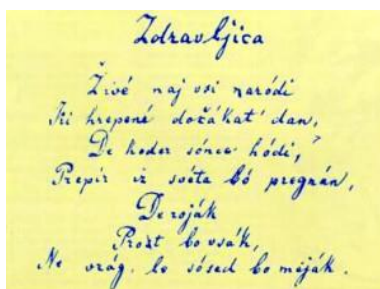 Zdravljica
Živé naj vsi naródi
Ki hrepené dočákat' dan,
De koder sónce hódi,
Prepir iz svéta bó pregnán,
De roják
Prost bo vsák,
Ne vrág, le sósed bo mëják.